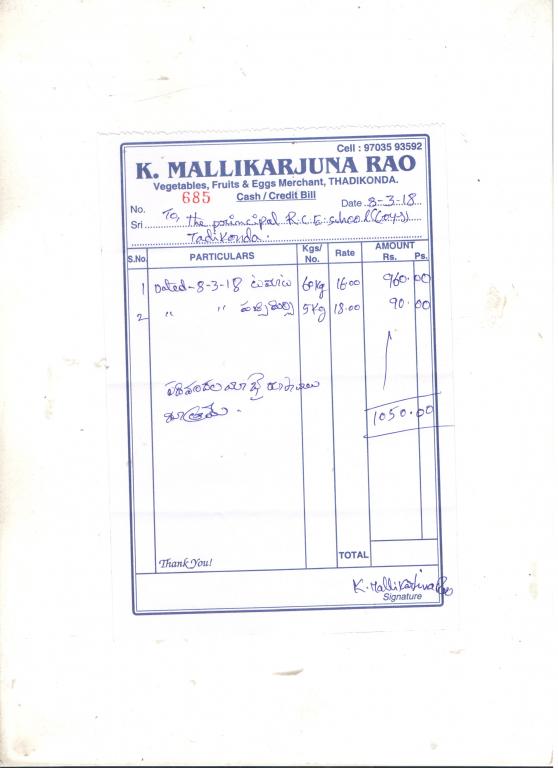 Cell : 97035 93592
K. MALLIKARJUNA RAO
Vegetables, Fruits & Eggs Merchant, THADIKONDA.
685 Cash / Credit Bill
No. Date 8-3-18
Sri To, the porimcipal R.C.E. school (Boys)
Tadikonda.
S.No. PARTICULARS Kgs/No. Rate AMOUNT Rs. Ps.
1 Dated-8-3-18 టమాట 60kg 16.00 960.00
2 " " 5kg 18.00 90.00
1050.00
Thank You!
TOTAL
K. Mallikarjuna Rao
Signature